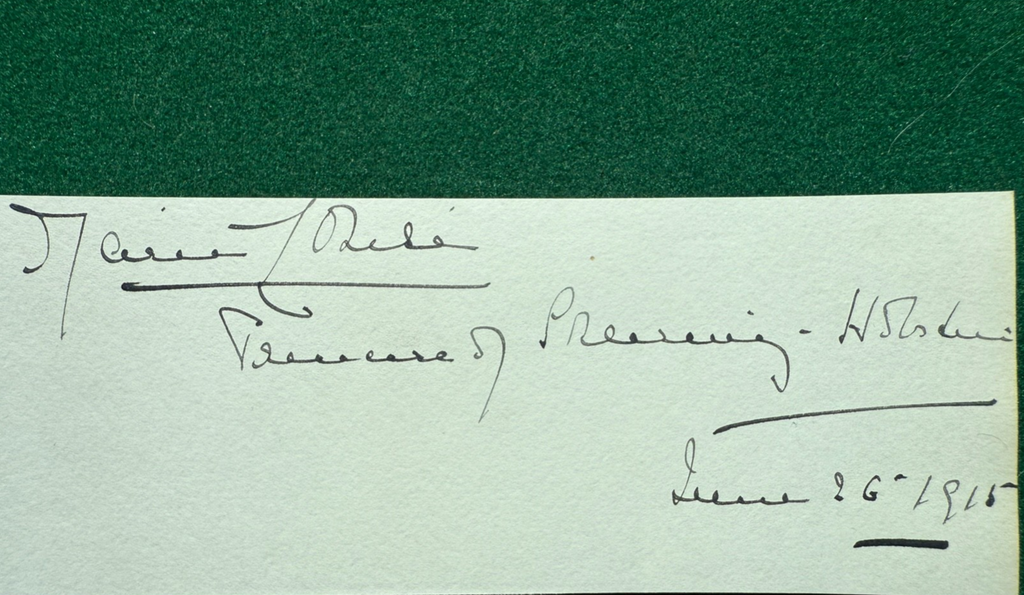 Marie Louise
Princess of Schleswig-Holstein
June 26 1915